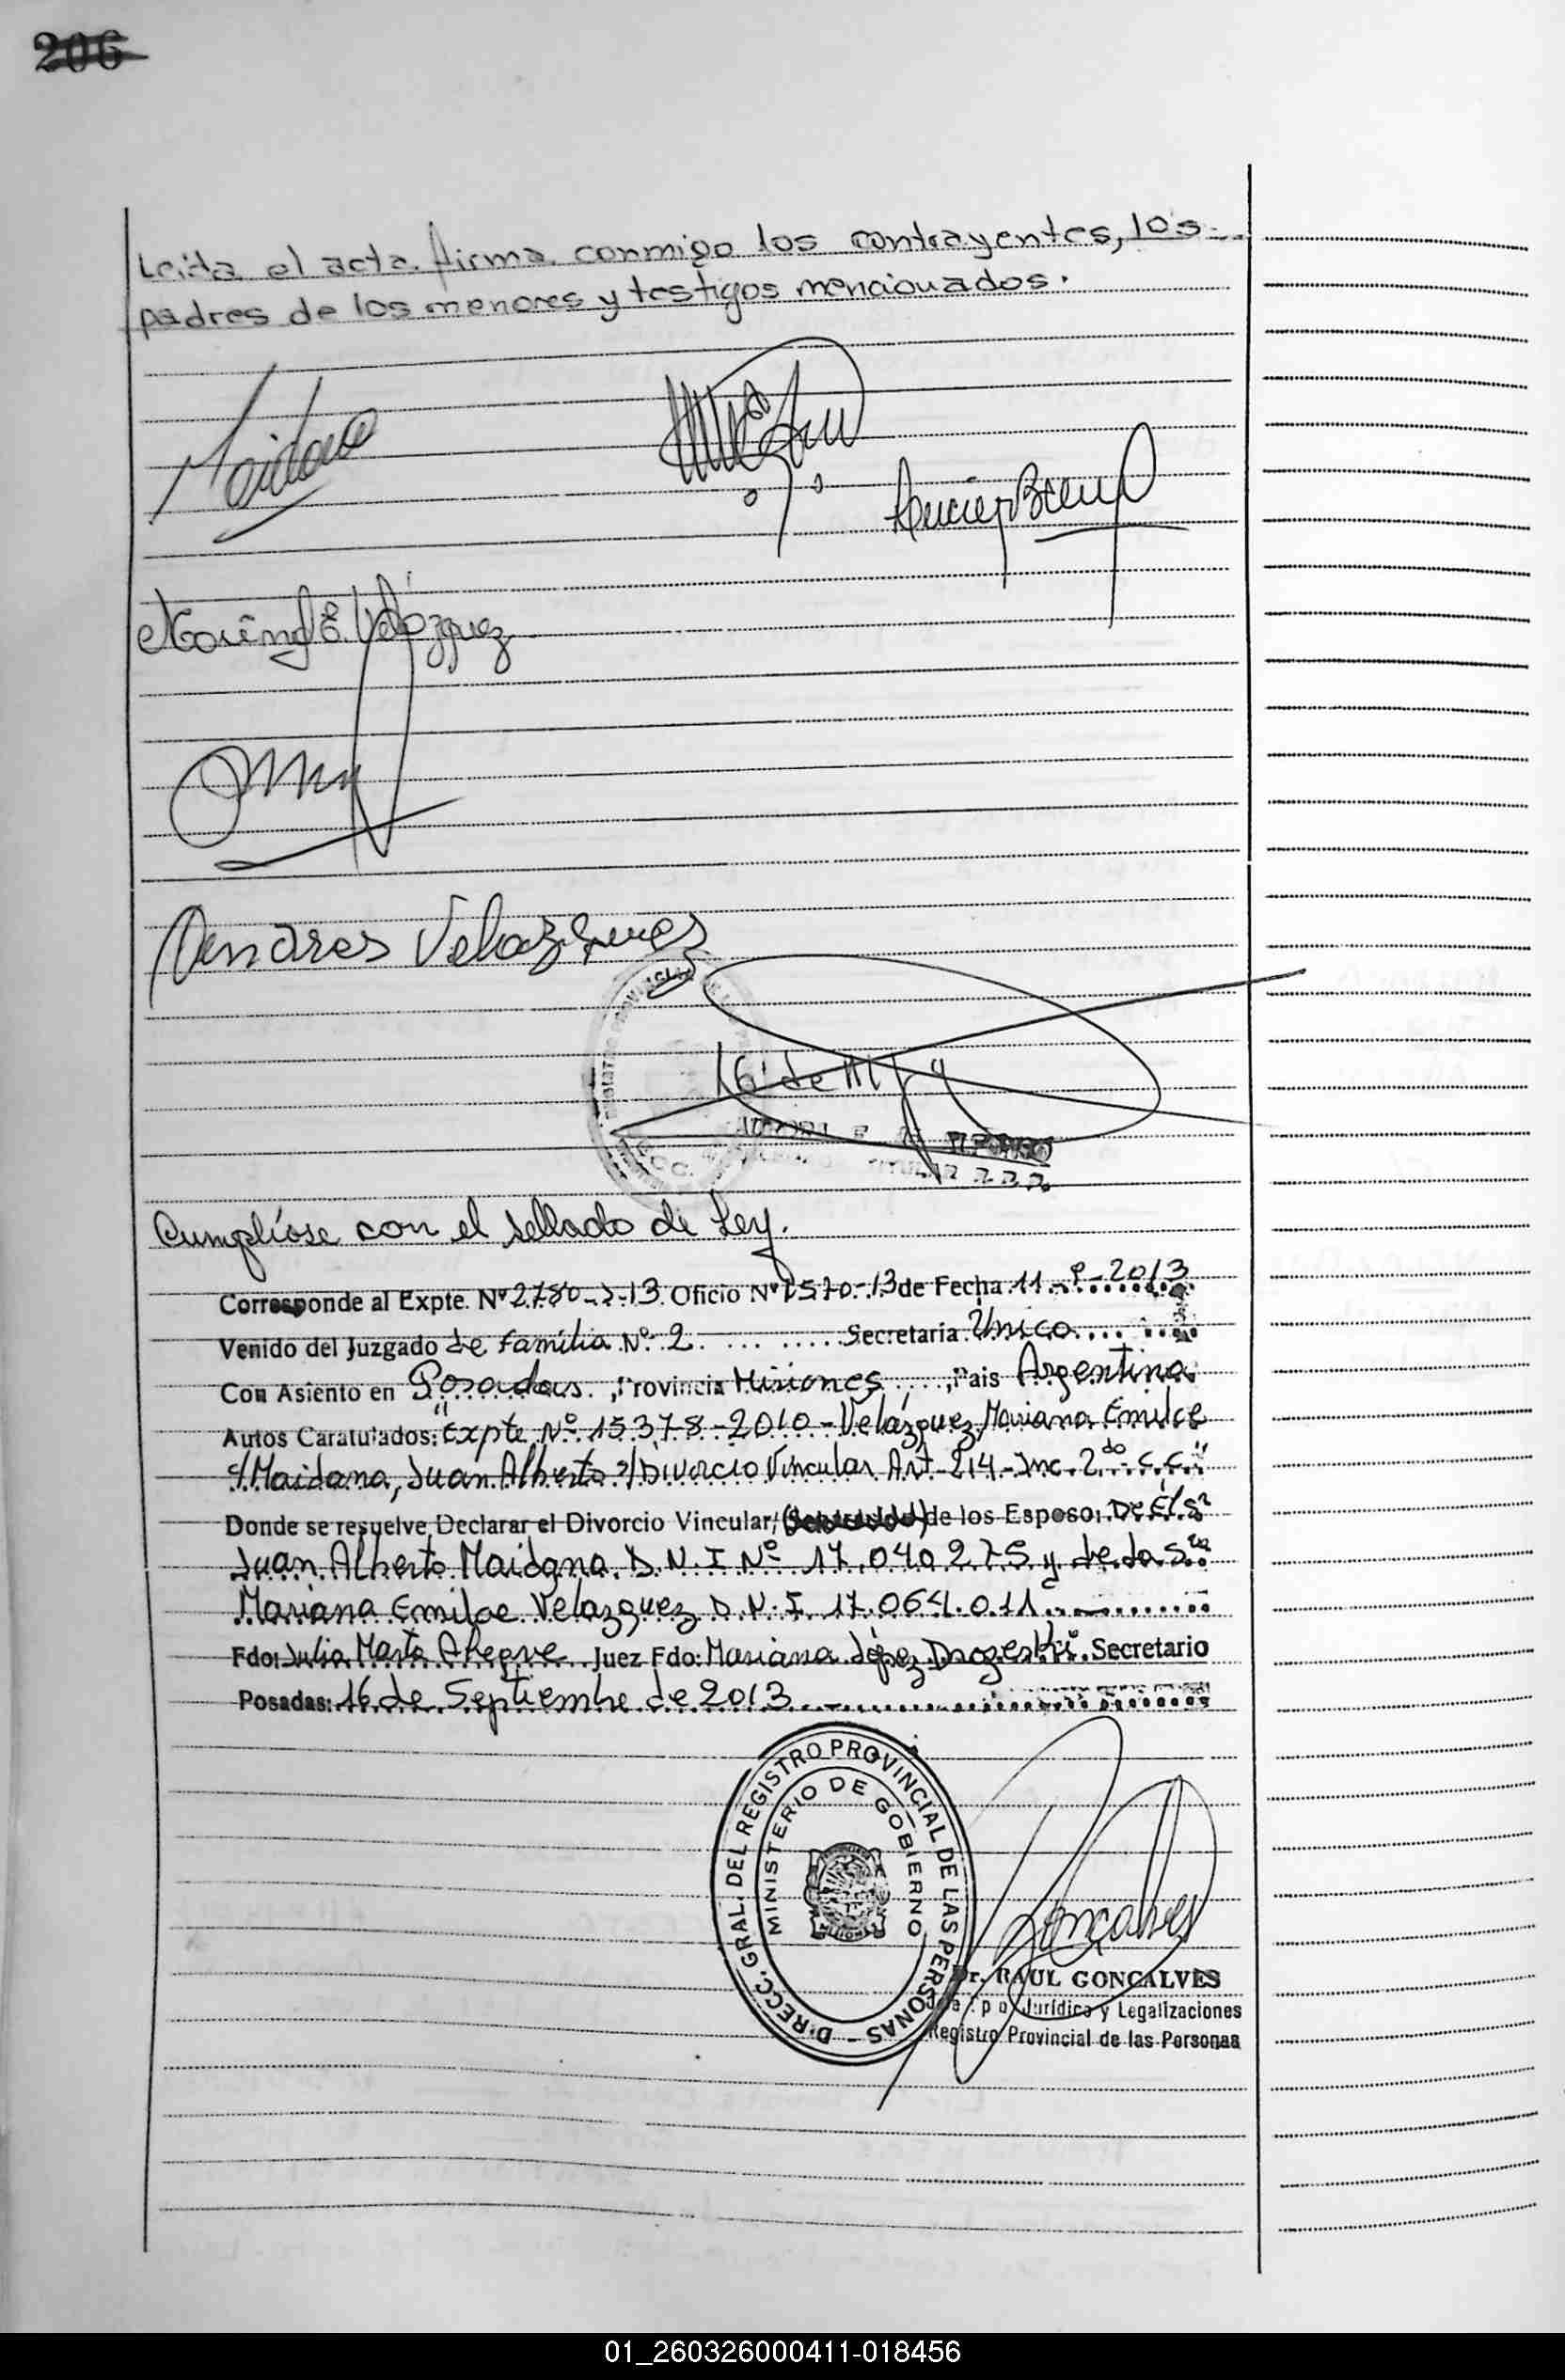 206
Leida el acta. firma. conmigo los contrayentes, los
padres de los menores y testigos mencionados.
Maidana
E. Velázquez
Velazquez
16 de
TITULAR
Cumplíose con el sellado de Ley.
Corresponde al Expte. Nº 2780 13 Oficio Nº 1570-13 de Fecha 11 2013
Venido del Juzgado de Familia Nº 2 Secretaría Único
Con Asiento en Posadas, Provincia Misiones, Pais Argentina
Autos Caratulados: "Expte Nº 15378-2010-Velázquez, Mariana Emilce
c/Maidana, Juan Alberto s/Divorcio Vincular Art-214-Inc. 2do C.C."
Donde se resuelve Declarar el Divorcio Vincular, de los Esposo: De Él Sr
Juan Alberto Maidana D.N.I Nº 17.040.275 y de la Sra
Mariana Emilce Velazquez D.N.I. 17.064.011
Fdo: Julia Marta Alegre Juez Fdo: Mariana López Secretario
Posadas: 16 de Septiembre de 2013
DIRECC. GRAL. DEL REGISTRO PROVINCIAL DE LAS PERSONAS
MINISTERIO DE GOBIERNO
Goncalves
Dr. RAUL GONCALVES
Jurídico y Legalizaciones
Registro Provincial de las Personas
01_260326000411-018456